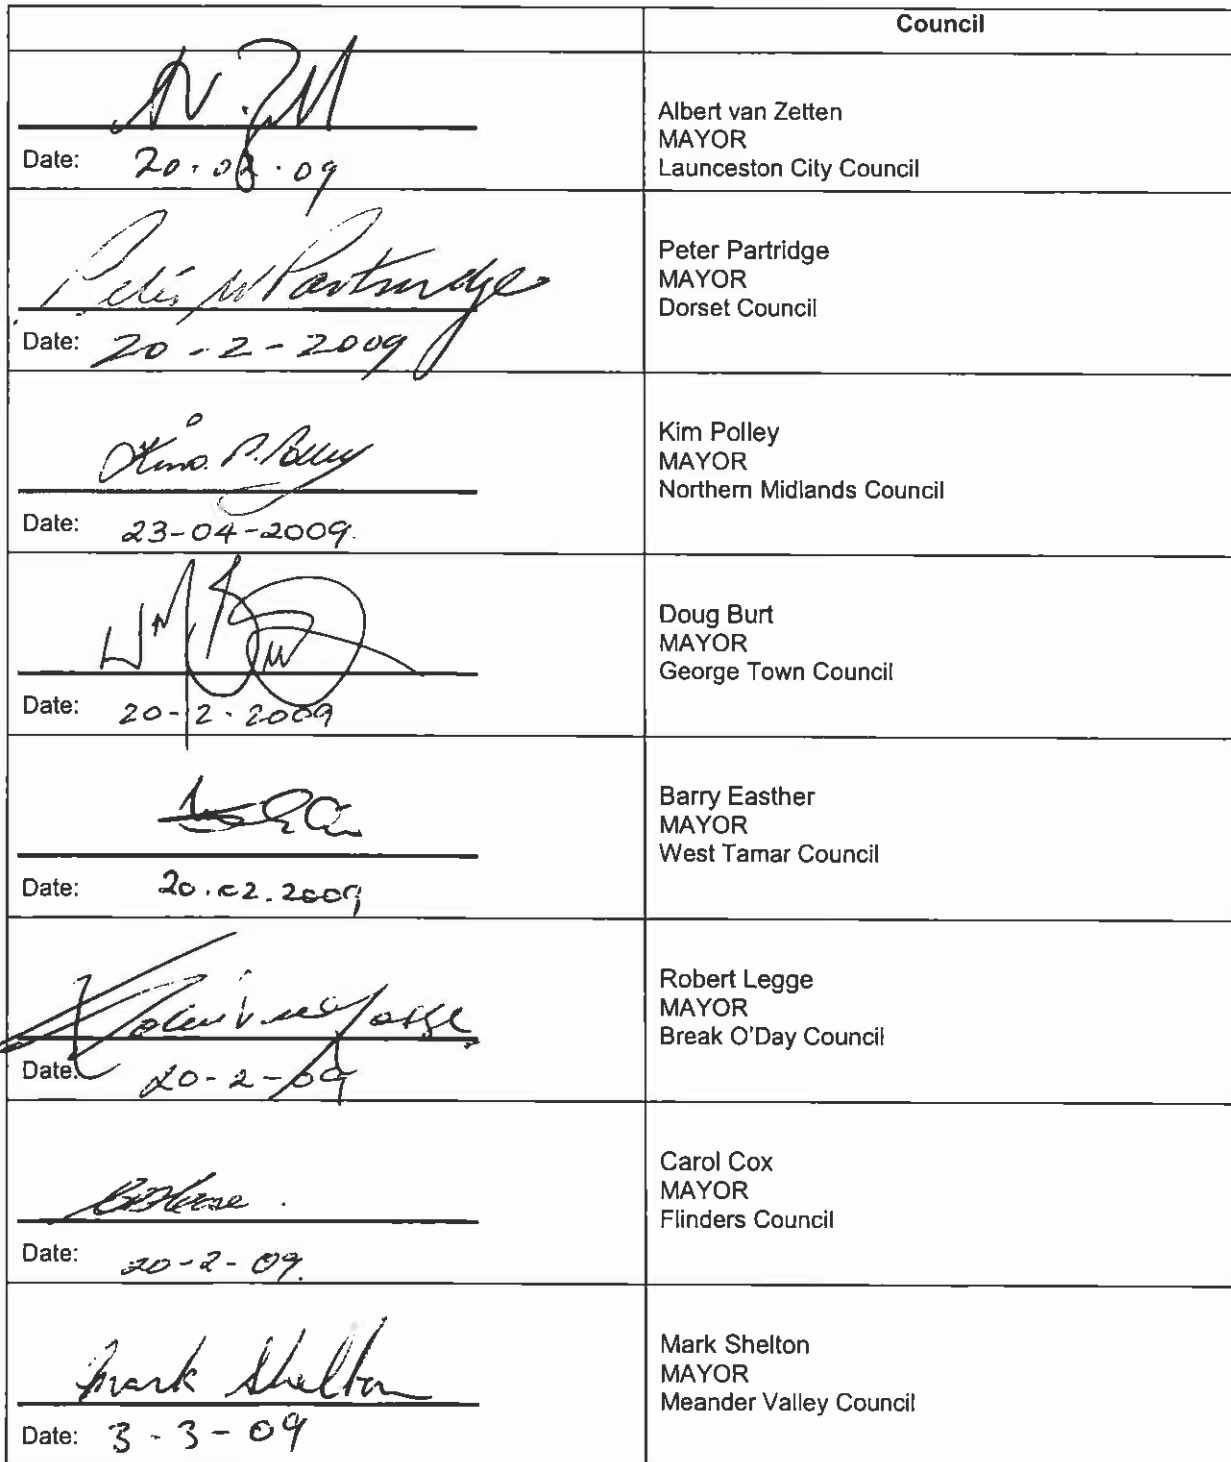 Council
Date: 20.02.09
Albert van Zetten
MAYOR
Launceston City Council
Peter W Partridge
Date: 20-2-2009
Peter Partridge
MAYOR
Dorset Council
Kim P. Polley
Date: 23-04-2009.
Kim Polley
MAYOR
Northern Midlands Council
Date: 20-2-2009
Doug Burt
MAYOR
George Town Council
Date: 20.02.2009
Barry Easther
MAYOR
West Tamar Council
Date: 20-2-09
Robert Legge
MAYOR
Break O'Day Council
Date: 20-2-09.
Carol Cox
MAYOR
Flinders Council
Mark Shelton
Date: 3-3-09
Mark Shelton
MAYOR
Meander Valley Council